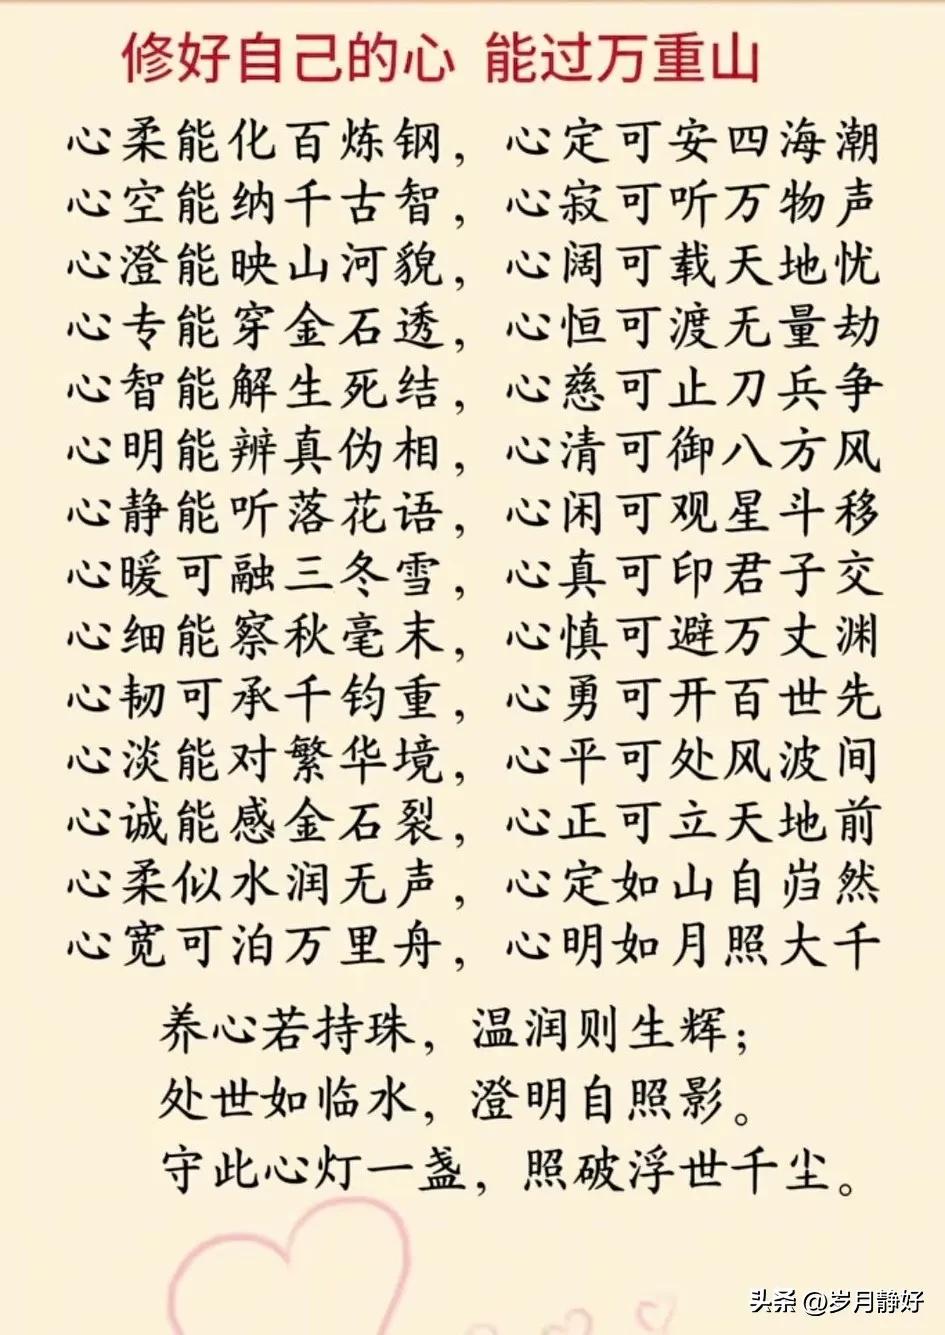 修好自己的心 能过万重山
心柔能化百炼钢，心定可安四海潮
心空能纳千古智，心寂可听万物声
心澄能映山河貌，心阔可载天地忧
心专能穿金石透，心恒可渡无量劫
心智能解生死结，心慈可止刀兵争
心明能辨真伪相，心清可御八方风
心静能听落花语，心闲可观星斗移
心暖可融三冬雪，心真可印君子交
心细能察秋毫末，心慎可避万丈渊
心韧可承千钧重，心勇可开百世先
心淡能对繁华境，心平可处风波间
心诚能感金石裂，心正可立天地前
心柔似水润无声，心定如山自岿然
心宽可泊万里舟，心明如月照大千
养心若持珠，温润则生辉；
处世如临水，澄明自照影。
守此心灯一盏，照破浮世千尘。
头条 @岁月静好